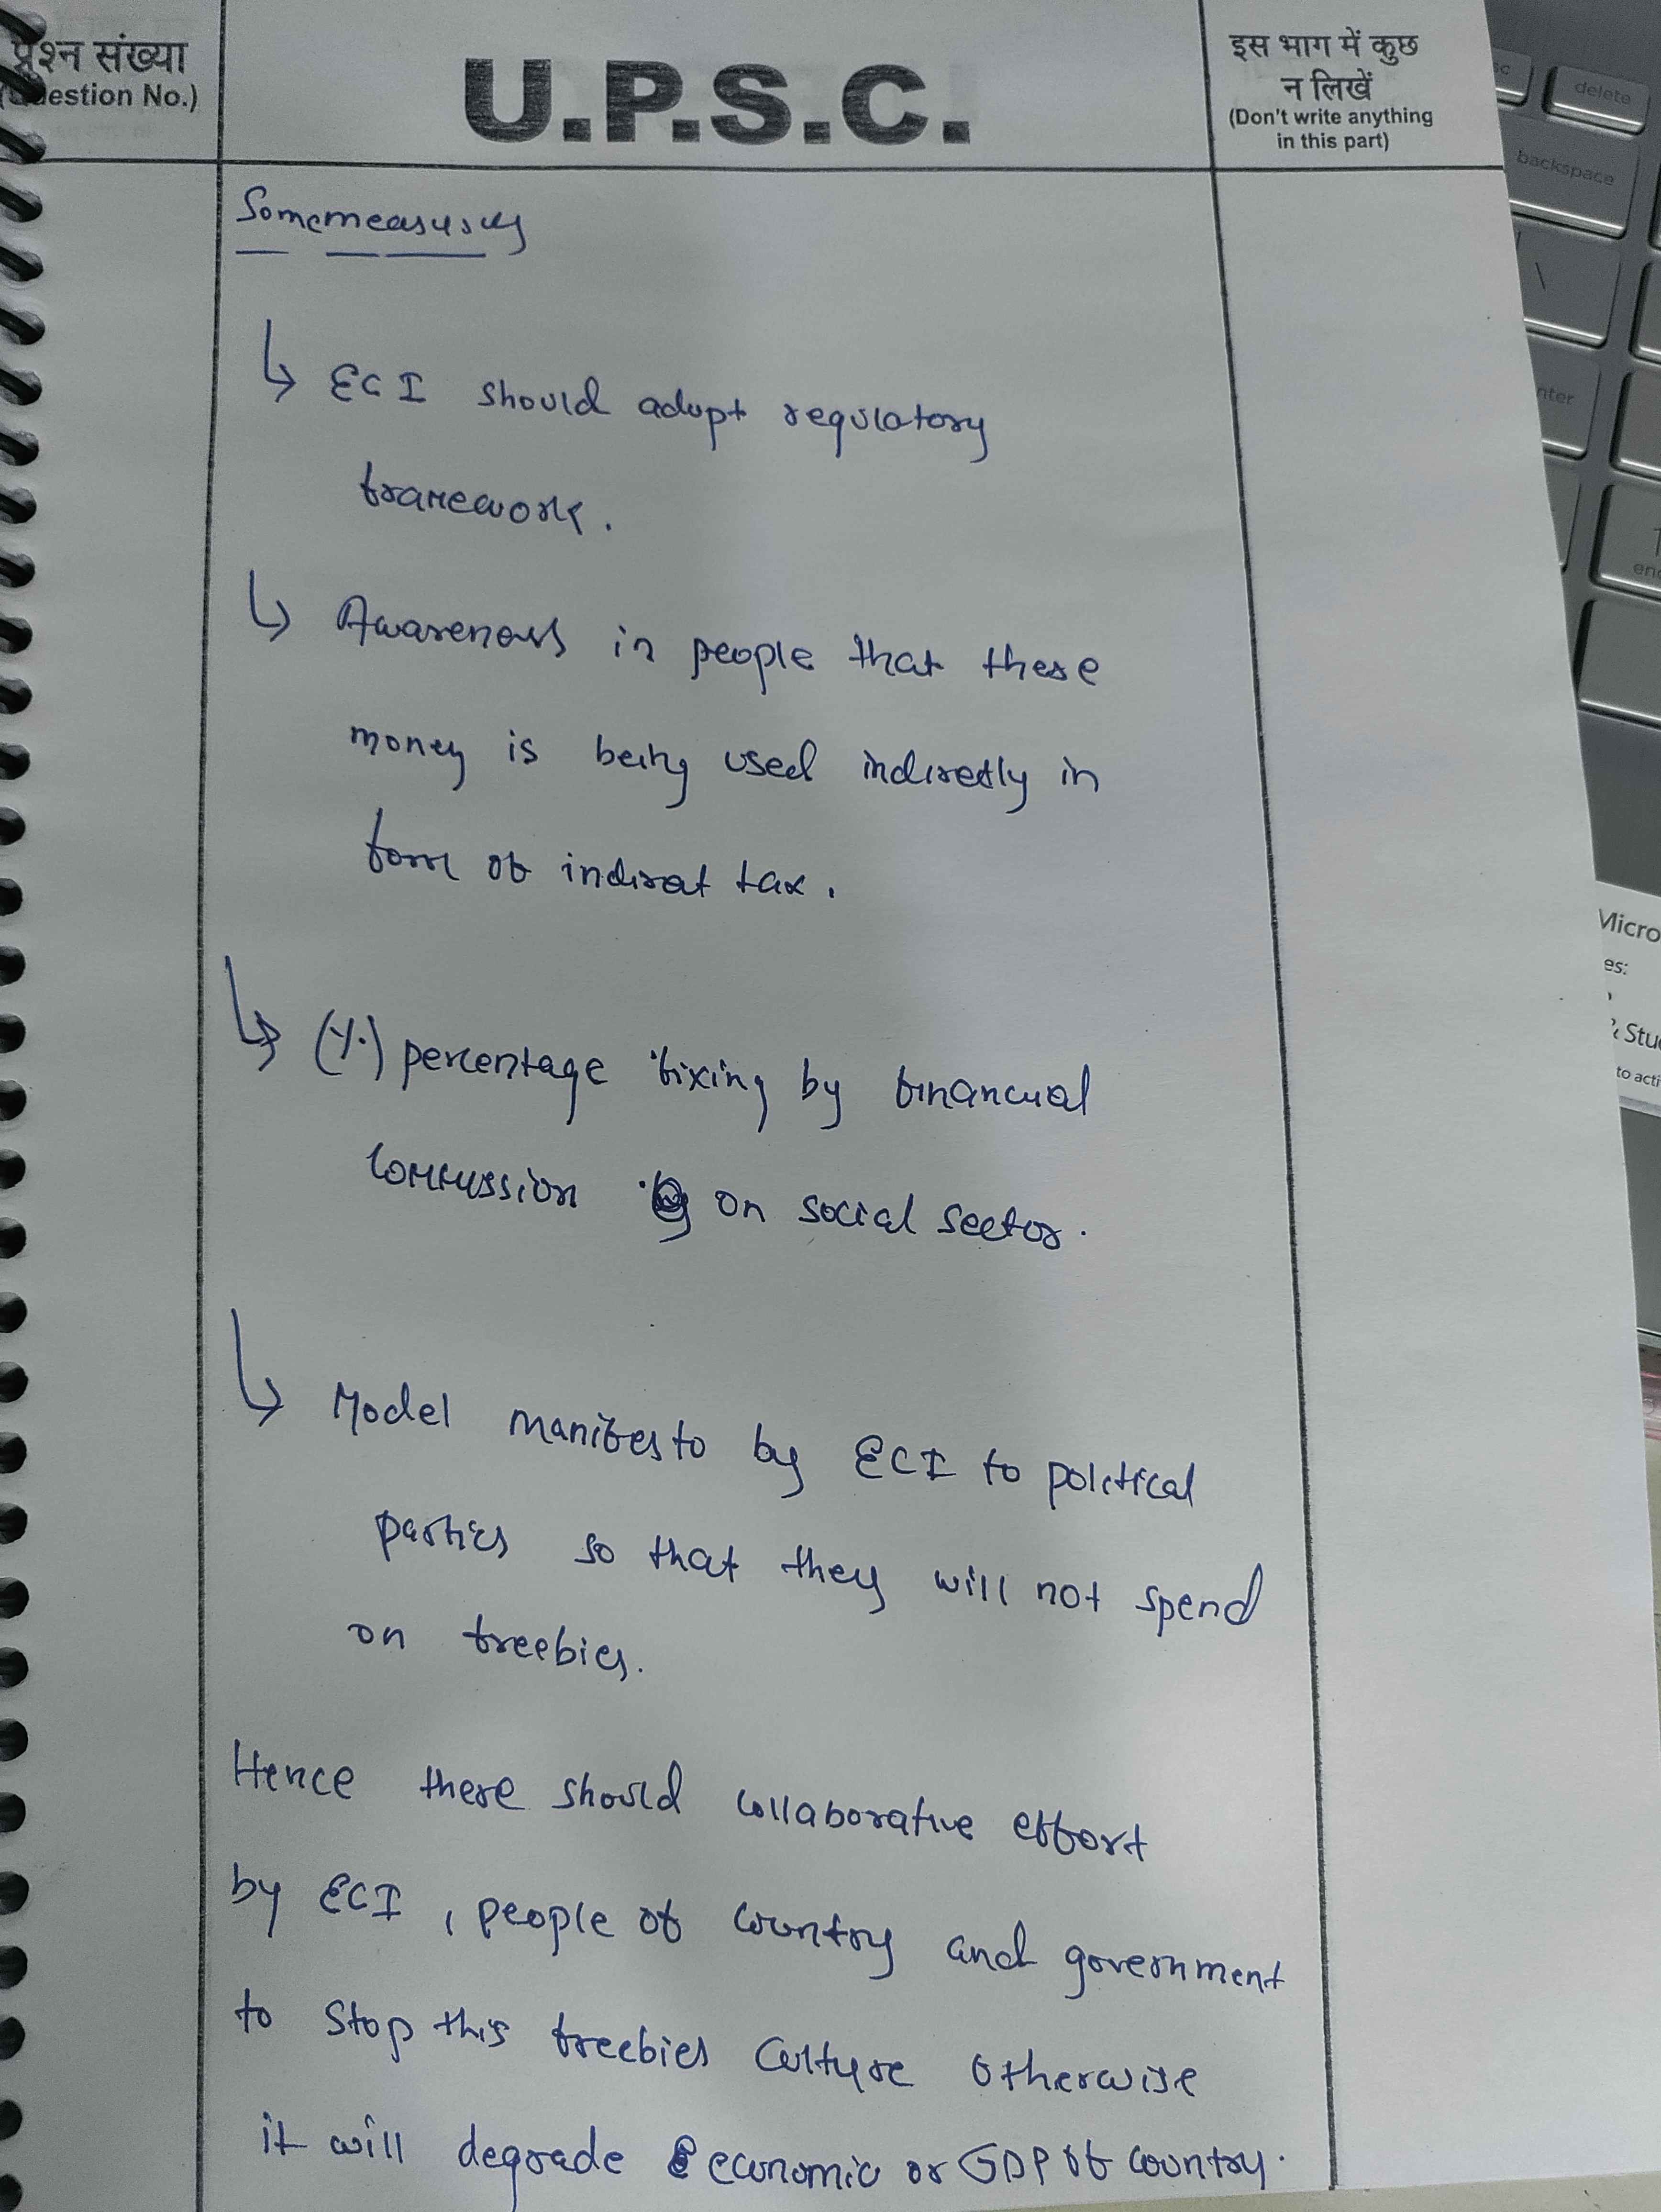 प्रश्न संख्या
(Question No.)
U.P.S.C.
इस भाग में कुछ
न लिखें
(Don't write anything
in this part)
Some measures
↳ ECI should adopt regulatory
framework.
↳ Awareness in people that these
money is being used indirectly in
form of indirect tax.
↳ (%) percentage fixing by financial
commission on social sector.
↳ Model manifesto by ECI to political
parties so that they will not spend
on freebies.
Hence there should collaborative effort
by ECI, people of country and government
to stop this freebies culture otherwise
it will degrade economic or GDP of country.
delete
backspace
\
enter
Micro
es:
& Stu
to acti